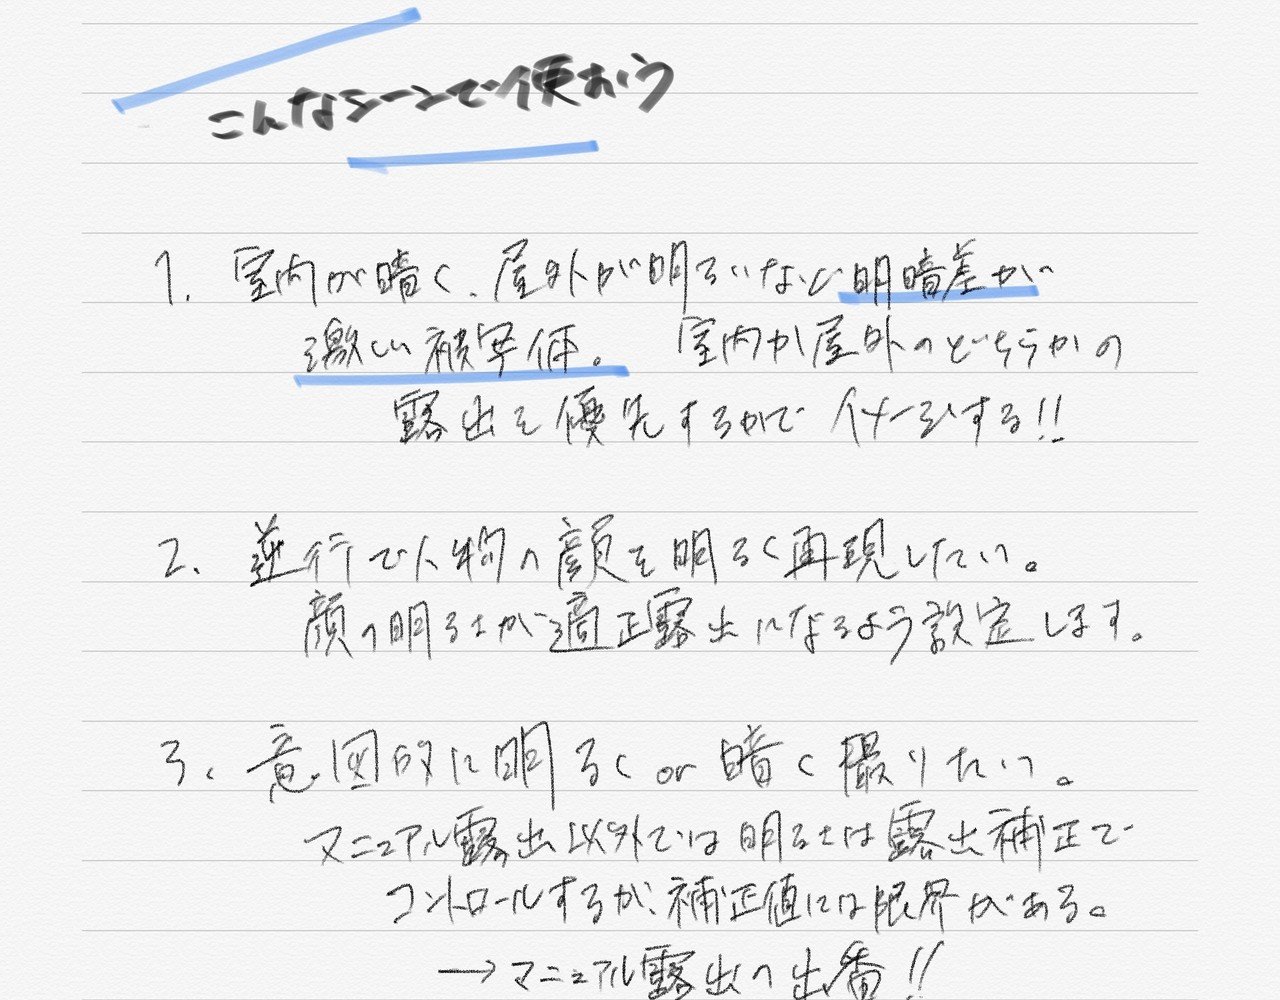 こんなシーンで使おう
1. 室内が暗く、屋外が明るいなど明暗差が
激しい被写体。 室内か屋外のどちらかの
露出を優先するかでイメージする!!
2. 逆行で人物の顔を明るく再現したい。
顔の明るさが適正露出になるよう設定します。
3. 意図的に明るく or 暗く撮りたい。
マニュアル露出以外では明るさは露出補正で
コントロールするが、補正値には限界がある。
→マニュアル露出の出番!!